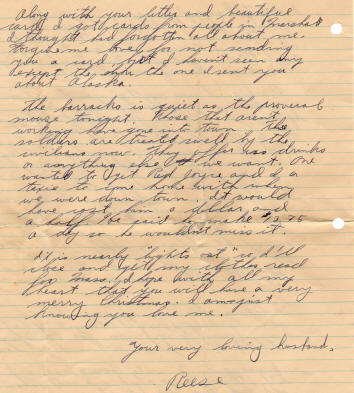 Along with your letter and beautiful
card I got cards from people in Marshall
I thought had forgotten all about me.
Forgive me love for not sending
you a card, but I haven't seen any
except the one I sent you
about Alaska.
The barracks is quiet as the proverbial
mouse tonight. Those that aren't
working have gone into town. The
soldiers are treated swell by the
civilians now. They will buy us drinks
or anything else we want. One
wanted to get Red Joyce and I a
taxi to come home with when
we were down town. It would
have cost him a dollar and
a half. He said he made $12.75
a day so he wouldn't miss it.
It is nearly "lights out" so I'll
close and get my clothes ready
for Mass. I hope with all my
heart that you will have a very
merry Christmas.
knowing you love me.
Your very loving husband,
Reese